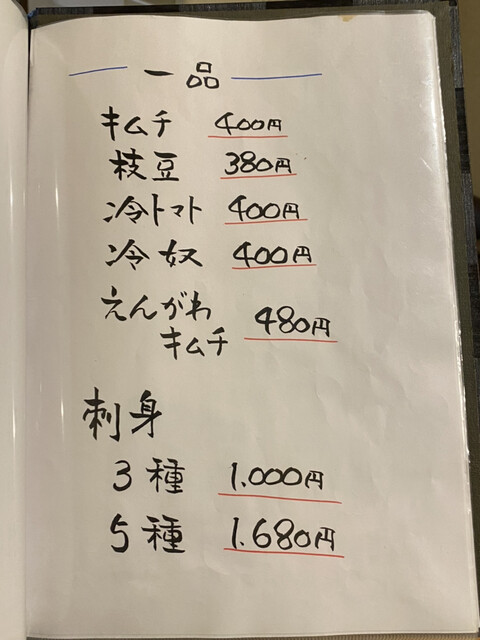 一品
キムチ 400円
枝豆 380円
冷トマト 400円
冷奴 400円
えんがわ
キムチ 480円
刺身
3種 1.000円
5種 1.680円